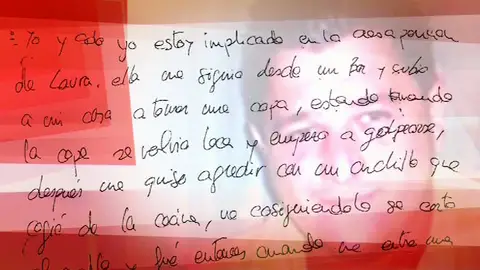 : Yo y solo yo estoy implicado en la desaparicion
de Laura. ella me siguio desde un Bar y subio
a mi casa a tomar una copa, estando tomando
la copa se volvio loca y empezo a golpearse,
despues me quiso agredir con un cuchillo que
cogió de la cocina, no cosiguiendolo se corto
y fué entonces cuando me entro una